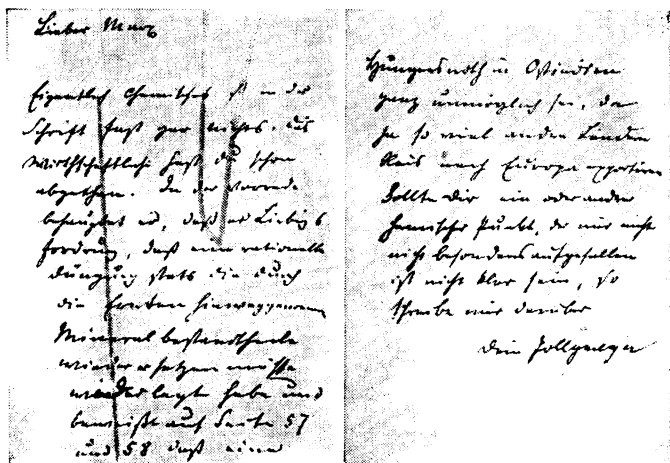 Lieber Marx
Eigentlich Chemisches ist in der
Schrift fast gar nichts. Das
wirthschaftliche hast du schon
abgethan. In der Vorrede
behauptet er, daß er Liebigs
Fordrung, daß eine rationelle
Düngung stets die durch
die Ernten hinweggenommenen
Mineralbestandtheile
wieder ersetzen müsse
wiederlegt habe und
beweißt auf Seite 57
und 58 daß eine
Hungersnoth in Ostindien
ganz unmöglich sei, da
ja so viel andere Länder
Reis nach Europa exportiren
Sollte Dir ein oder ander
chemischer Punkt, der mir nicht
nicht besonders aufgefallen
ist nicht klar sein, so
schreibe mir darüber
Dein